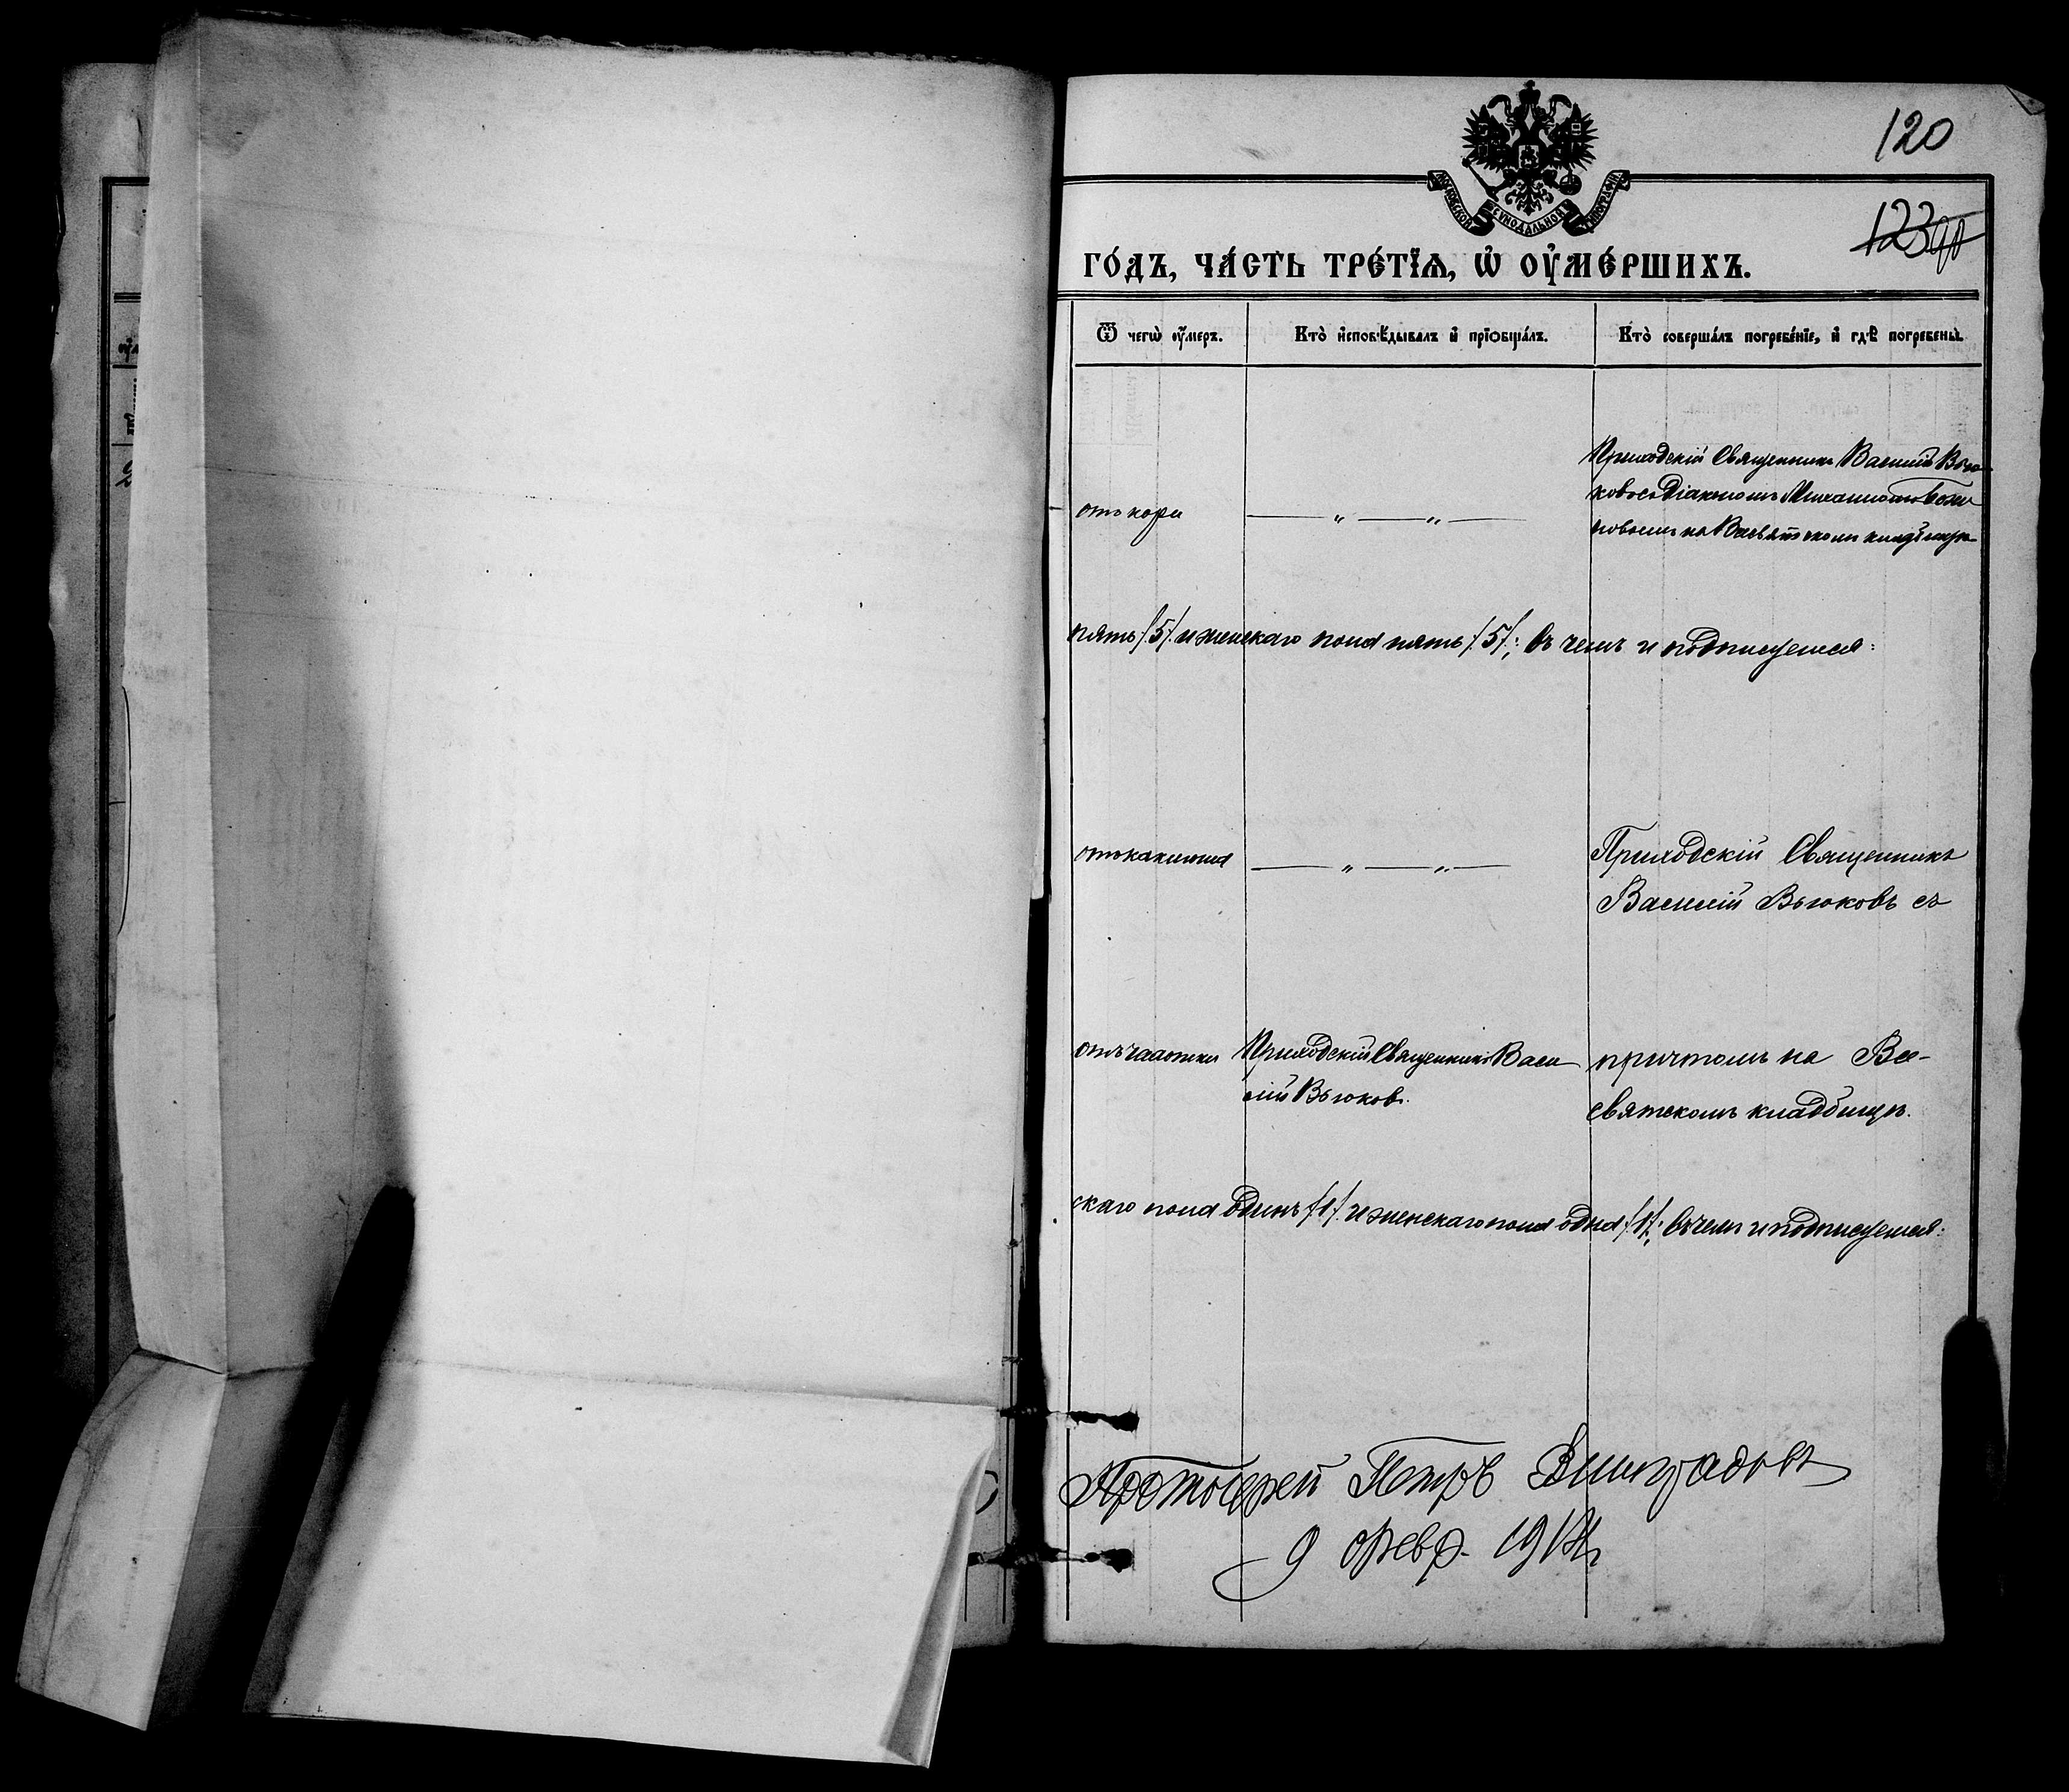 120
МОСКОВСКОЙ СѴНОДАЛЬНОЙ ТИПОГРАФІИ
123
го́дъ, ча́сть тре́тїѧ, ѡ҆ ᲂу҆ме́ршихъ.
Ѿ чегѡ̀ ᲂу҆́меръ.
Кто̀ и҆сповѣ́дывалъ и҆ прїѡбща́лъ.
Кто̀ соверша́лъ погребе́нїе, и҆ гдѣ̀ погребены̀.
отъ кори
— „ — „ —
Приходскій Священникъ Василій Вью-
ковъ съ Діакономъ Михаиломъ
на Всесвятскомъ кладбищѣ
пять /.5/. и женскаго пола пять /.5/.; въ чемъ и подписуемся:
отъ кашля
— „ — „ —
Приходскій Священникъ
Василій Вьюковъ съ
отъ чахотки
Приходскій Священникъ Васи
лій Вьюковъ.
причтомъ на Все-
святскомъ кладбищѣ.
скаго пола одинъ /.1/. и женскаго пола одна /.1/.; въ чемъ и подписуемся:
Протоіерей Петръ Виноградовъ
9 февр. 1914 г.